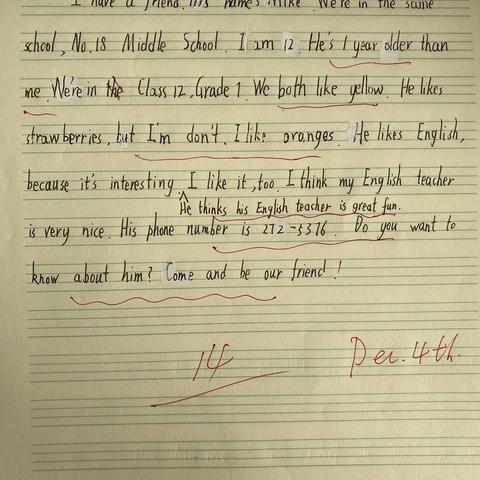 I have a friend. His name's Mike. We're in the same
school, No.18 Middle School. I am 12. He's 1 year older than
me. We're in the Class 12, Grade 1. We both like yellow. He likes
strawberries, but I'm don't. I like oranges. He likes English,
because it's interesting. I like it, too. I think my English teacher
He thinks his English teacher is great fun.
is very nice. His phone number is 272-5376. Do you want to
know about him? Come and be our friend!
14
Dec. 4th.